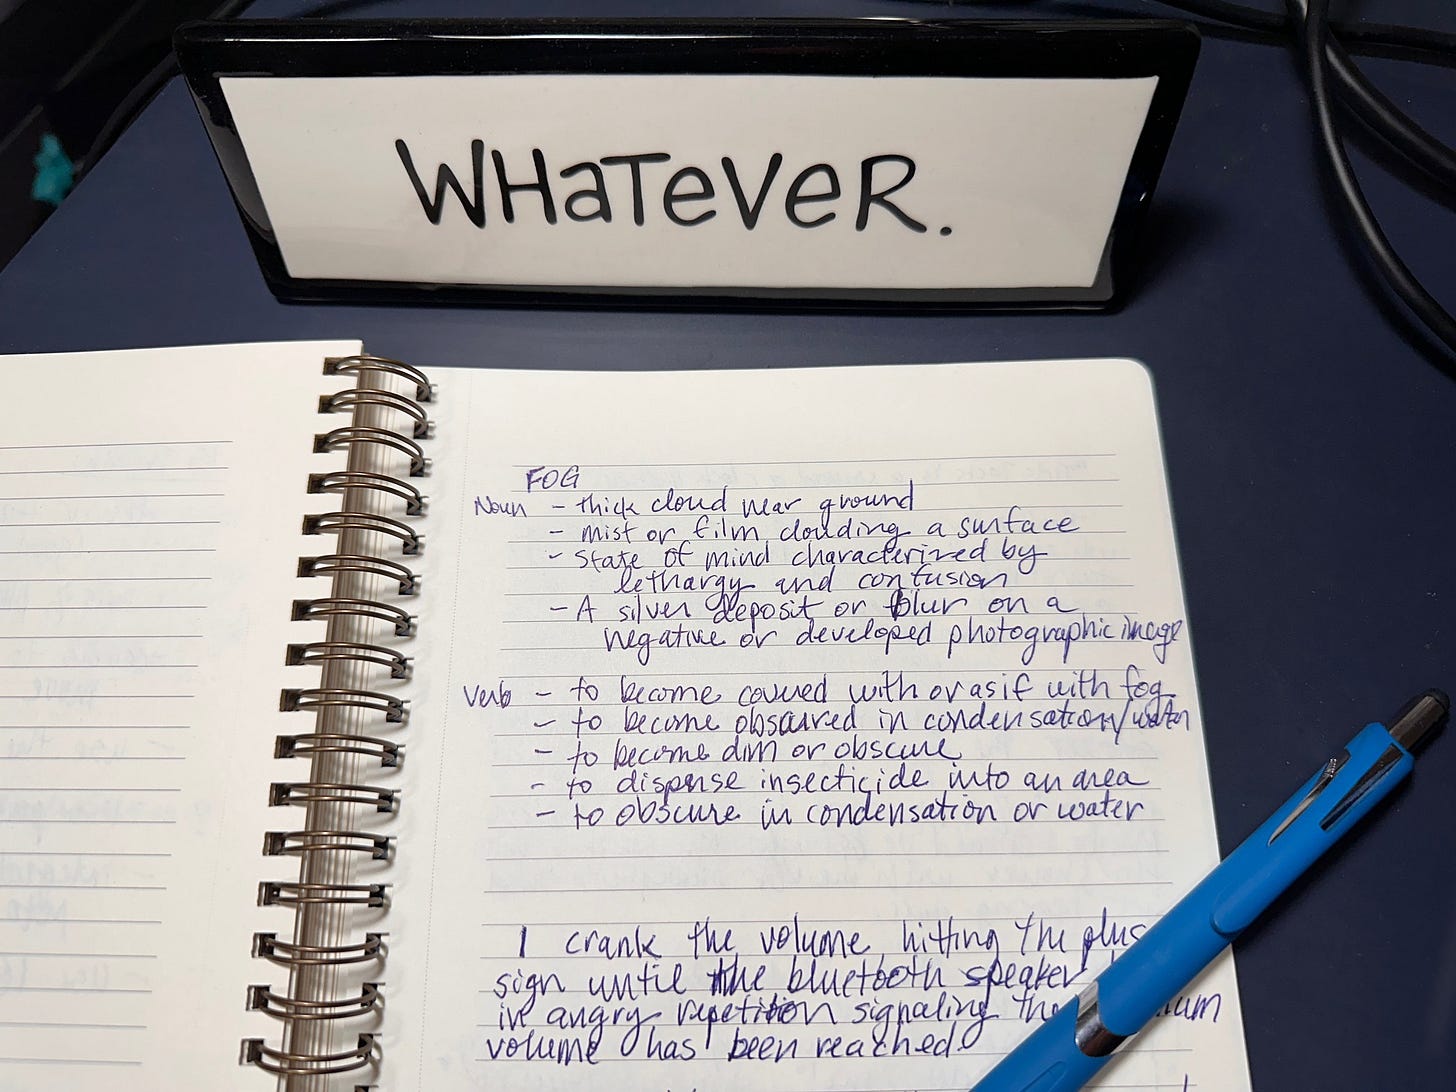 WHATEVER.
FOG
Noun - thick cloud near ground
- mist or film clouding a surface
- state of mind characterized by
lethargy and confusion
- A silver deposit or blur on a
negative or developed photographic image
Verb - to become covered with or as if with fog
- to become obscured in condensation/water
- to become dim or obscure
- to dispense insecticide into an area
- to obscure in condensation or water
I crank the volume hitting the plus
sign until the bluetooth speaker
in angry repetition signaling the
volume has been reached.